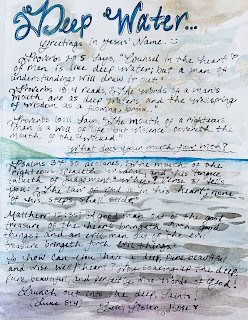 Deep Water...
Greetings in Jesus' Name. :)
Proverbs 20:5 says, "Counsel in the heart
of man is like deep water; but a man of
understanding will draw it out."
Proverbs 18:4 reads, "The words of a man's
mouth are as deep waters, and the wellspring
of wisdom as a flowing brook."
Proverbs 10:11 says, "The mouth of a righteous
man is a well of life: but violence covereth the
mouth of the wicked."
What does your mouth
Psalms 37:30 declares, "The mouth of the
righteous speaketh wisdom, and his tongue
talketh of judgment."
"The law of God is in his heart; none
of his steps shall slide."
Matthew 12:35 "A good man out of the good
treasure of the heart bringeth forth good
things: and an evil man out of the evil
treasure bringeth forth evil things."
So how can you have a deep, pure, beautiful
and wise well/heart? By soaking up the deep,
pure, beautiful and perfectly wise Words of God!
Launch out into the deep, Saints!
(Luke 5:4) Love, Eileen